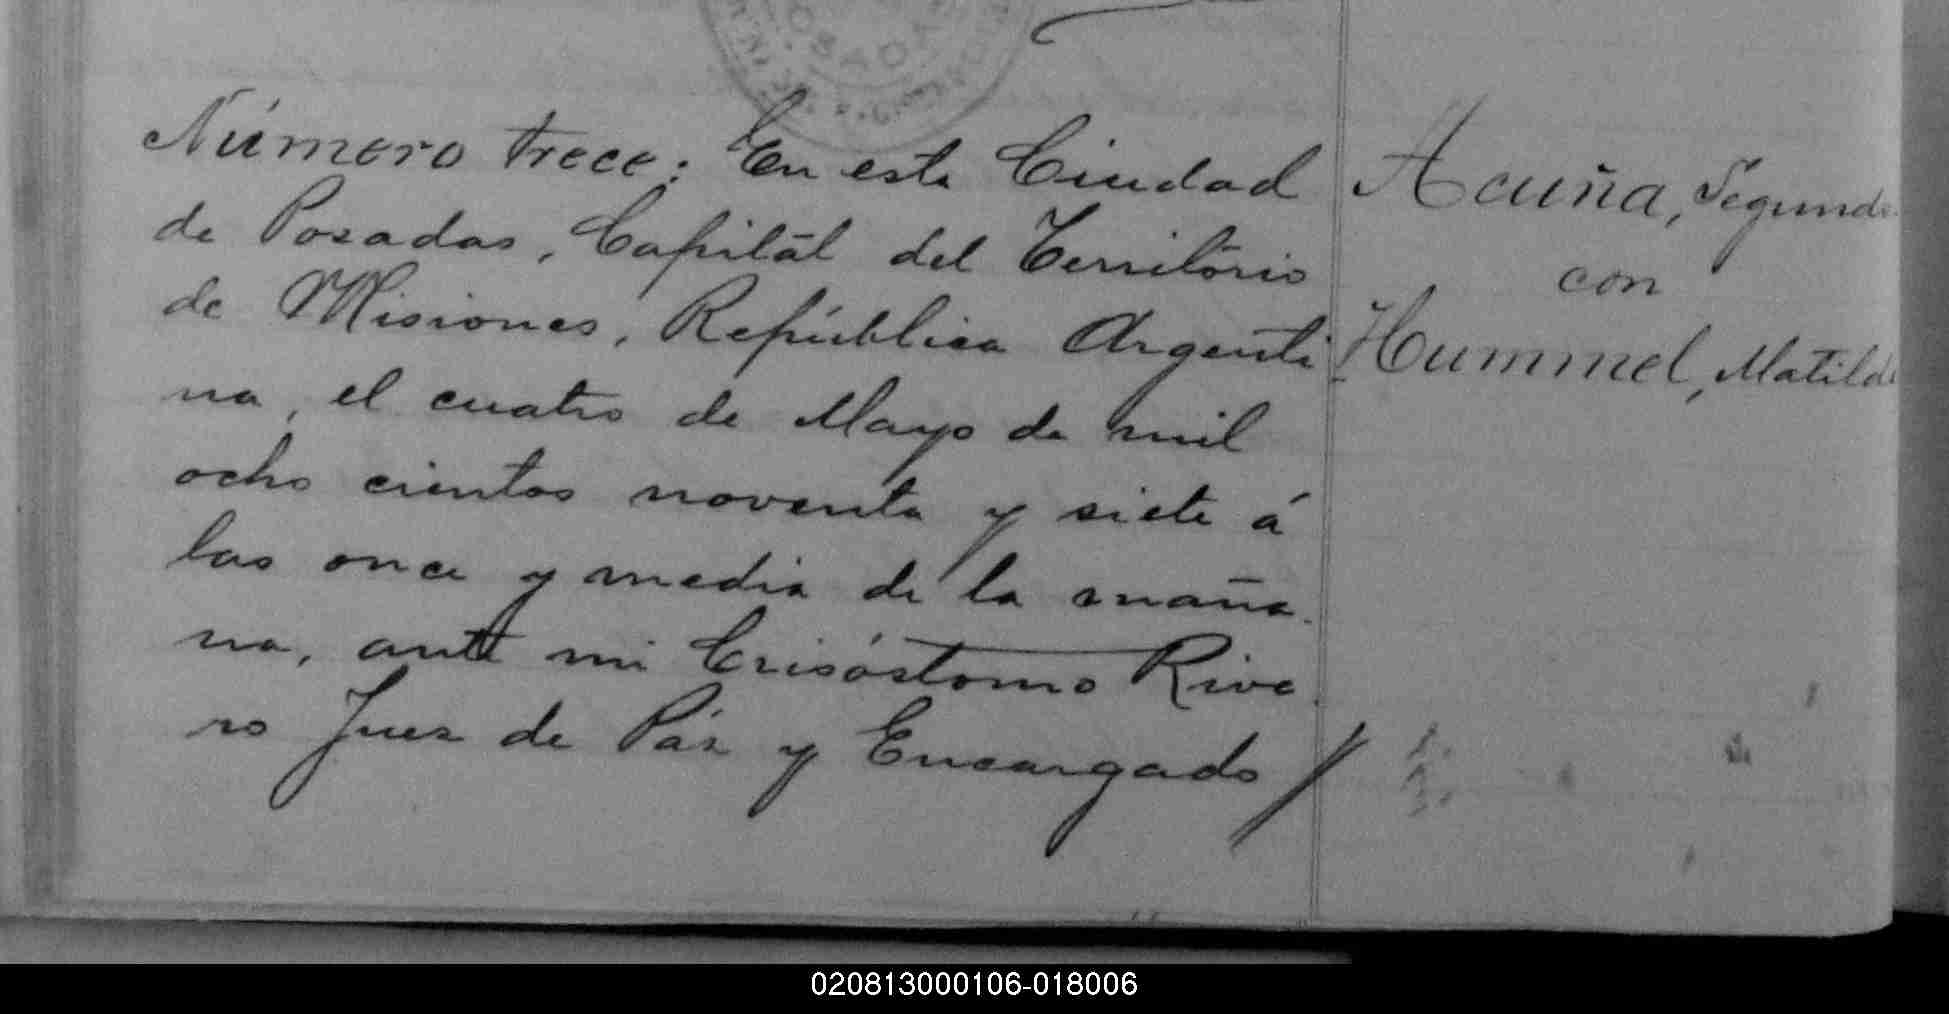 POSADAS
Número trece: En esta Ciudad
de Posadas, Capitál del Territorio
de Misiones, República Argenti
na, el cuatro de Mayo de mil
ocho cientos noventa y siete á
las once y media de la maña
na, ante mi Crisóstomo Rive
ro Juez de Páz y Encargado /
Acuña, Segundo
con
Hummel, Matilde
020813000106-018006